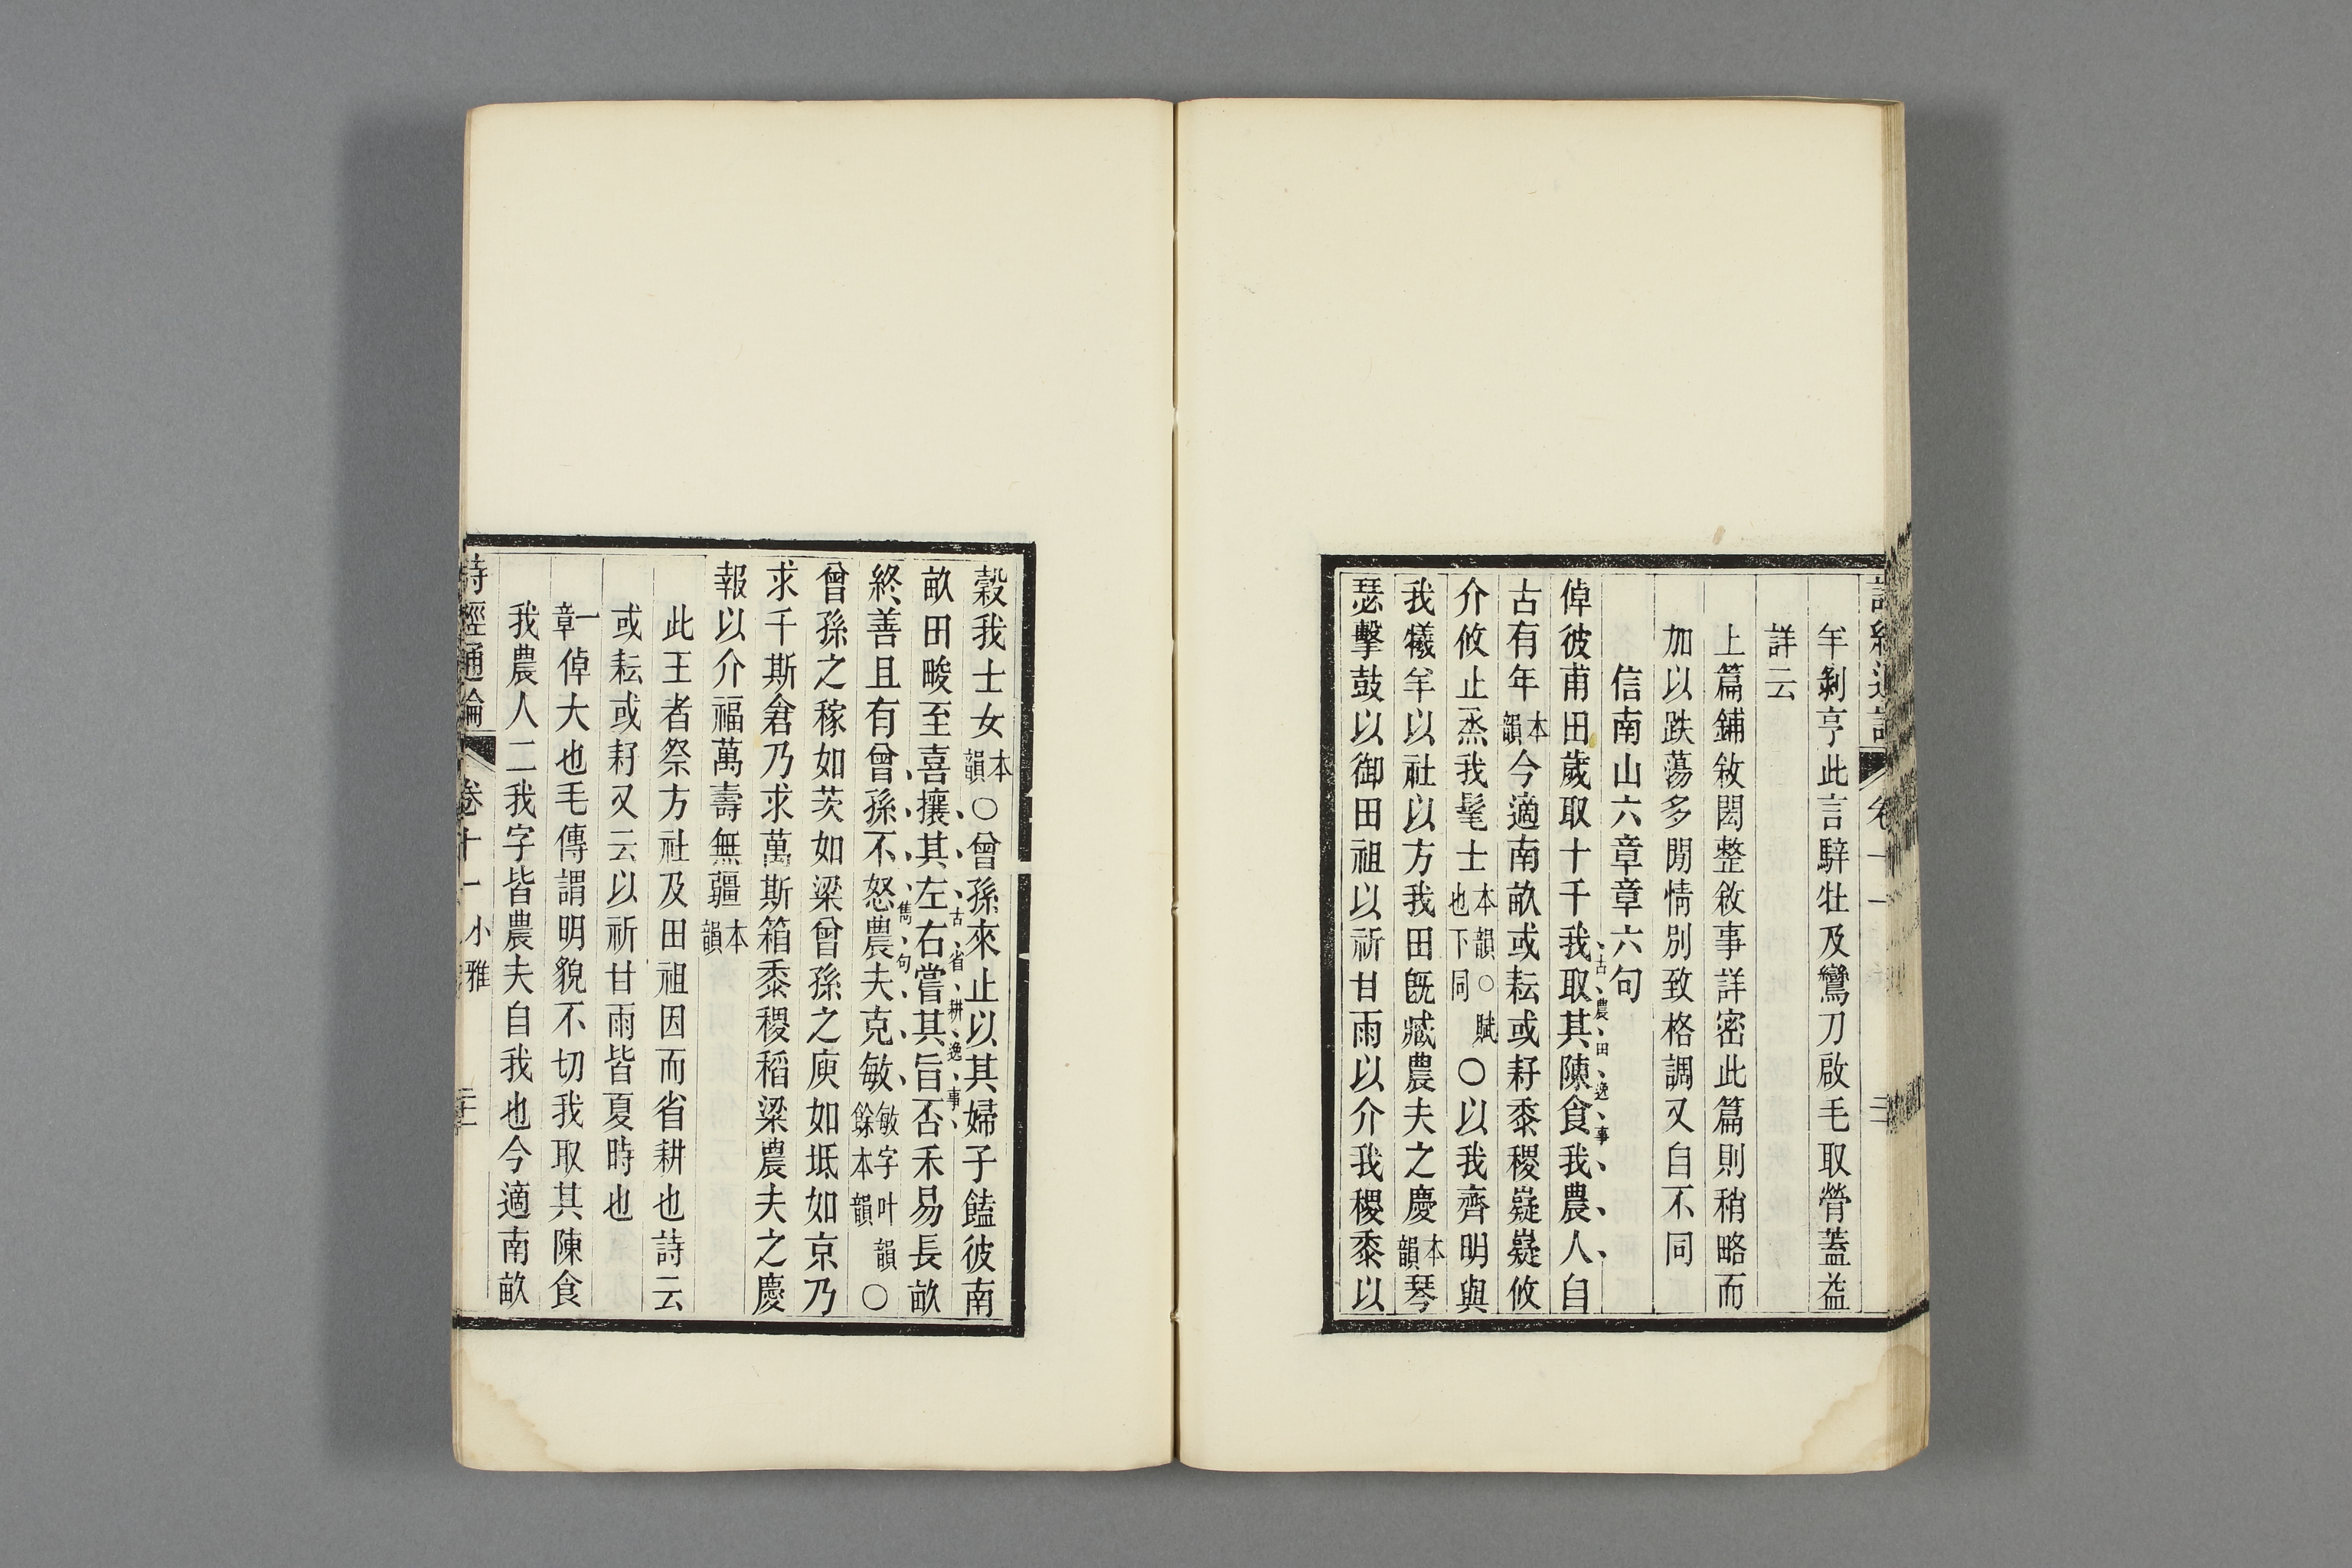 羊剝亨此言騂牡及鸞刀啟毛取膋蓋益
詳云
上篇鋪敘閎整敘事詳密此篇則稍略而
加以跌蕩多閒情別致格調又自不同
信南山六章章六句
倬彼甫田歲取十千我取其陳食我農人自
古農田逸事
古有年本韻今適南畝或耘或耔黍稷嶷嶷攸
介攸止烝我髦士本韻○賦也下同○以我齊明與
我犧羊以社以方我田既臧農夫之慶本韻琴
瑟擊鼓以御田祖以祈甘雨以介我稷黍以
穀我士女本韻○曾孫來止以其婦子饁彼南
古省耕逸事
畝田畯至喜攘其左右嘗其旨否禾易長畝
雋句
終善且有曾孫不怒農夫克敏敏字叶韻餘本韻○
曾孫之稼如茨如梁曾孫之庾如坻如京乃
求千斯倉乃求萬斯箱黍稷稻粱農夫之慶
報以介福萬壽無疆本韻
此王者祭方社及田祖因而省耕也詩云
或耘或耔又云以祈甘雨皆夏時也
一章倬大也毛傳謂明貌不切我取其陳食
我農人二我字皆農夫自我也今適南畝
詩經通論 卷十一 小雅